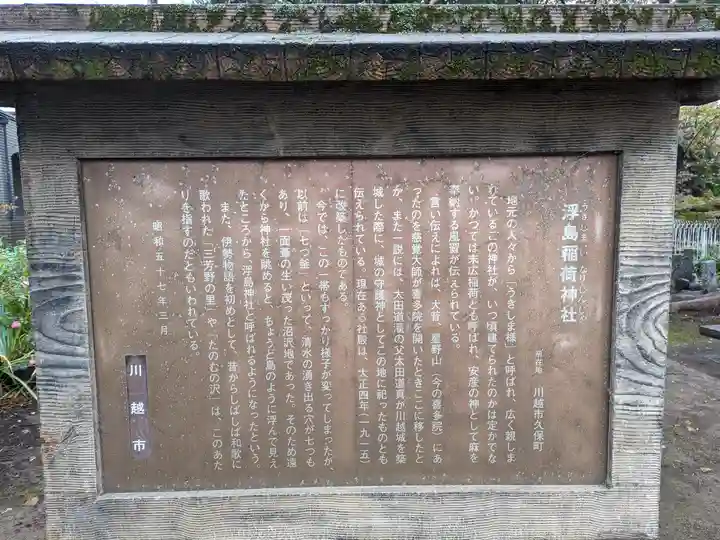 浮島稲荷神社
うきしまいなりじんじゃ
所在地 川越市久保町
地元の人々から「うきしま様」と呼ばれ、広く親しま
れているこの神社が、いつ頃建てられたのかは定かでな
い。かつては末広稲荷とも呼ばれ、安産の神として麻を
奉納する風習が伝えられている。
言い伝えによれば、大昔、星野山（今の喜多院）にあ
ったのを慈覚大師が喜多院を開いたときここに移したと
か、また一説には、太田道灌の父太田道真が川越城を築
城した際に、城の守護神としてこの地に祀ったものとも
伝えられている。現在ある社殿は、大正四年（一九一五）
に改築したものである。
今では、この一帯もすっかり様子が変ってしまったが、
以前は「七つ釜」といって、清水の湧き出る穴が七つも
あり、一面葦の生い茂った沼沢地であった。そのため遠
くから神社を眺めると、ちょうど島のように浮んで見え
たところから、浮島神社と呼ばれるようになったという。
また、伊勢物語を初めとして、昔からしばしば和歌に
歌われた「三芳野の里」や「たのむの沢」は、このあた
りを指すのだともいわれている。
昭和五十七年三月
川越市